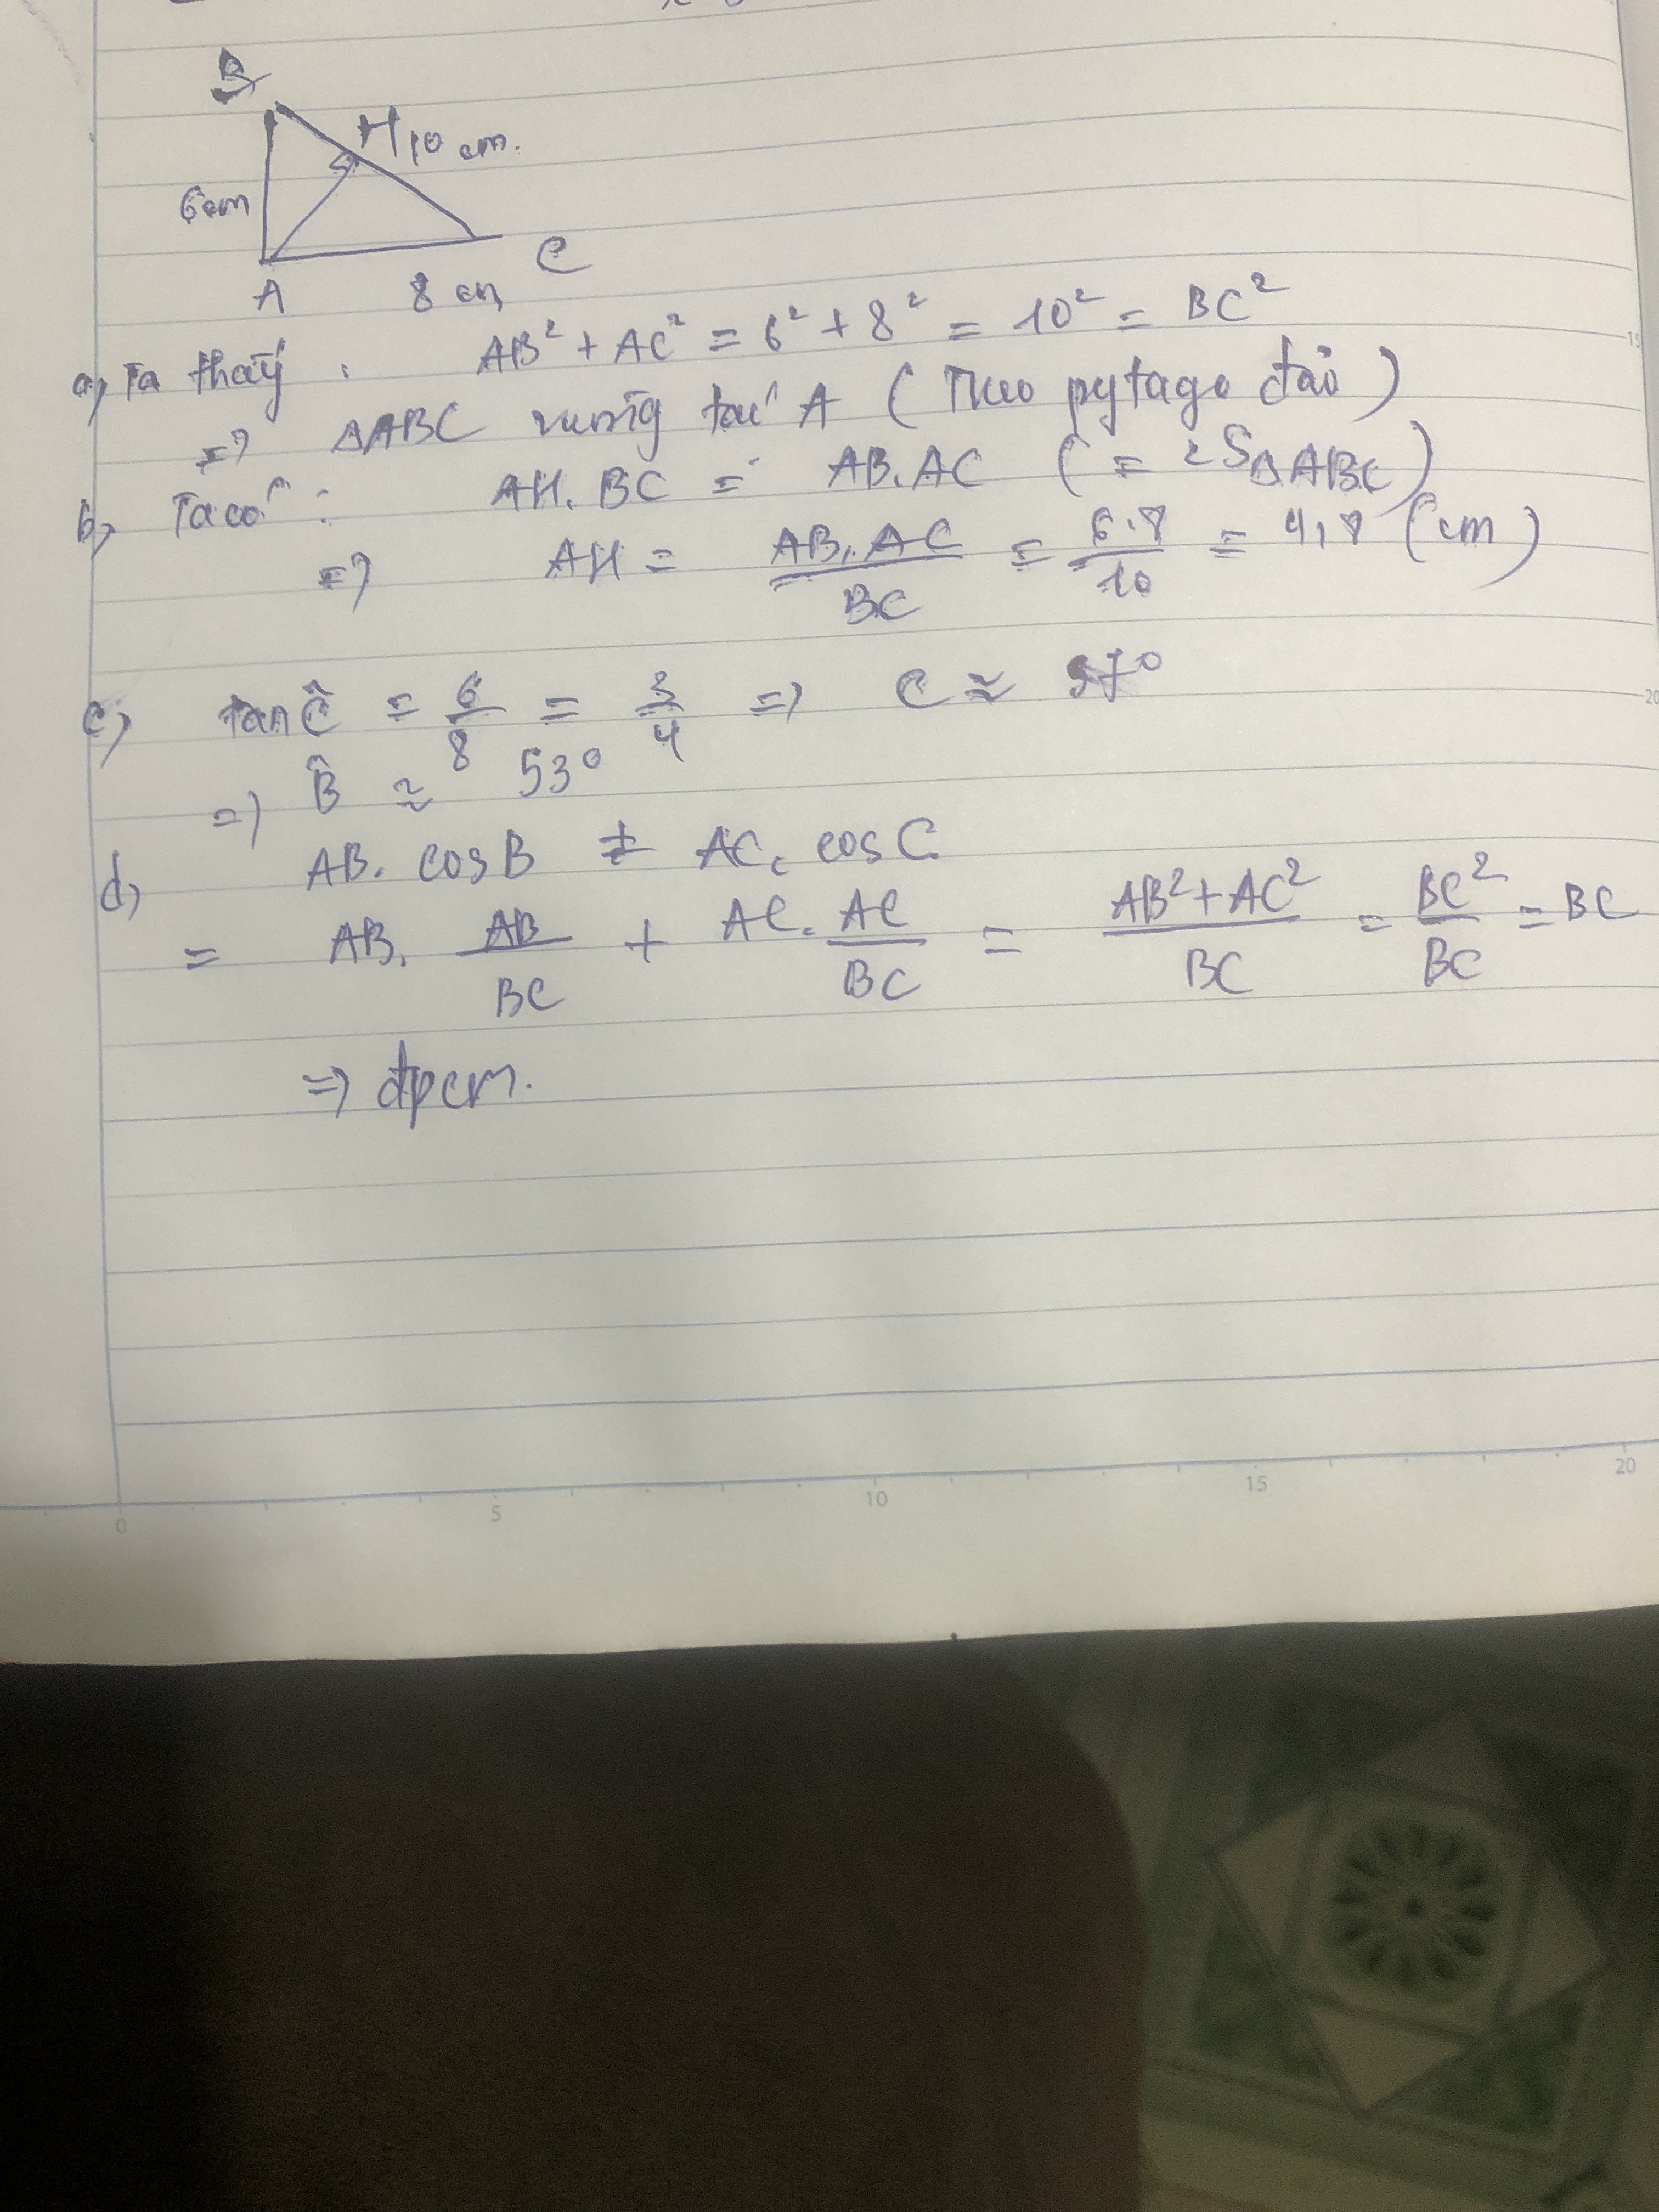 B
H 10 cm.
6cm
A 8 cm C
a, Ta thấy : AB² + AC² = 6² + 8² = 10² = BC²
=> ΔABC vuông tại A ( Theo pytago đảo )
b, Ta có : AH. BC = AB. AC ( = 2SΔABC )
=> AH = AB. AC / BC = 6.8 / 10 = 4,8 (cm)
c, tan Ĉ = 6/8 = 3/4 => C ≈ 37°
=> B̂ ≈ 53°
d, AB. cos B + AC. cos C
= AB. AB/BC + AC. AC/BC = AB² + AC² / BC = BC²/BC = BC
=> đpcm.
15
20
0 5 10 15 20